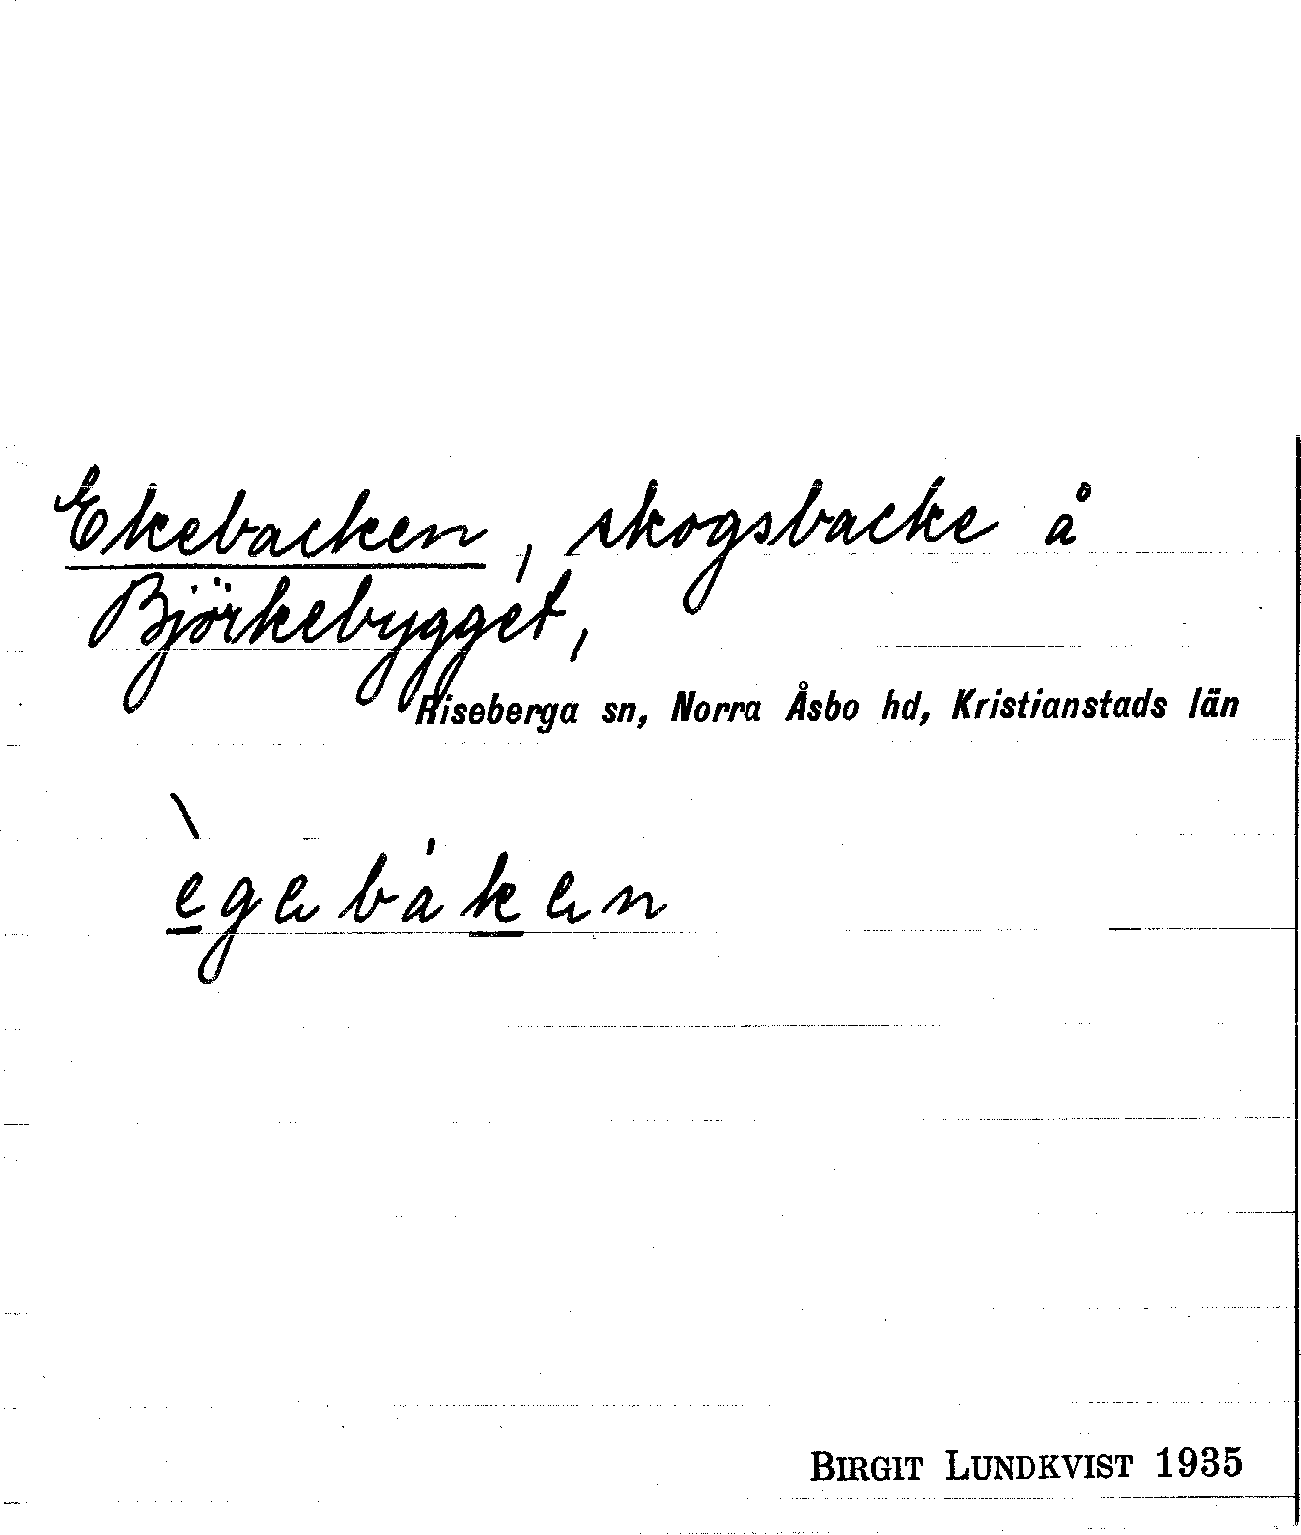 Ekebacken, skogsbacke å
Björkebygget,
Riseberga sn, Norra Åsbo hd, Kristianstads län
ègebáken
BIRGIT LUNDKVIST 1935